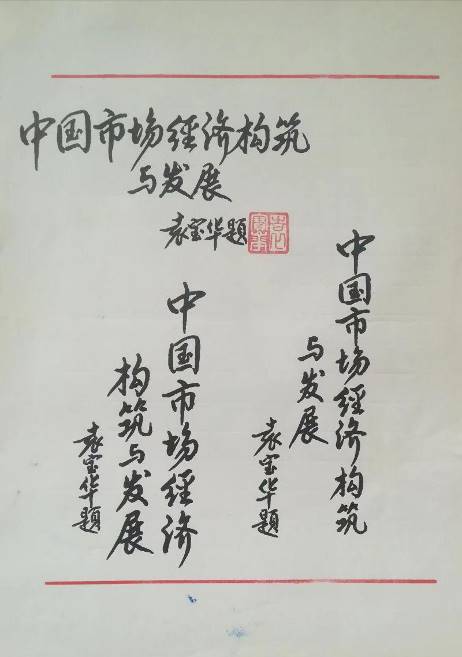 中国市场經济构筑
与发展
袁宝华題
中国市场經济构筑
与发展
袁宝华題
中国市场經济
构筑与发展
袁宝华題